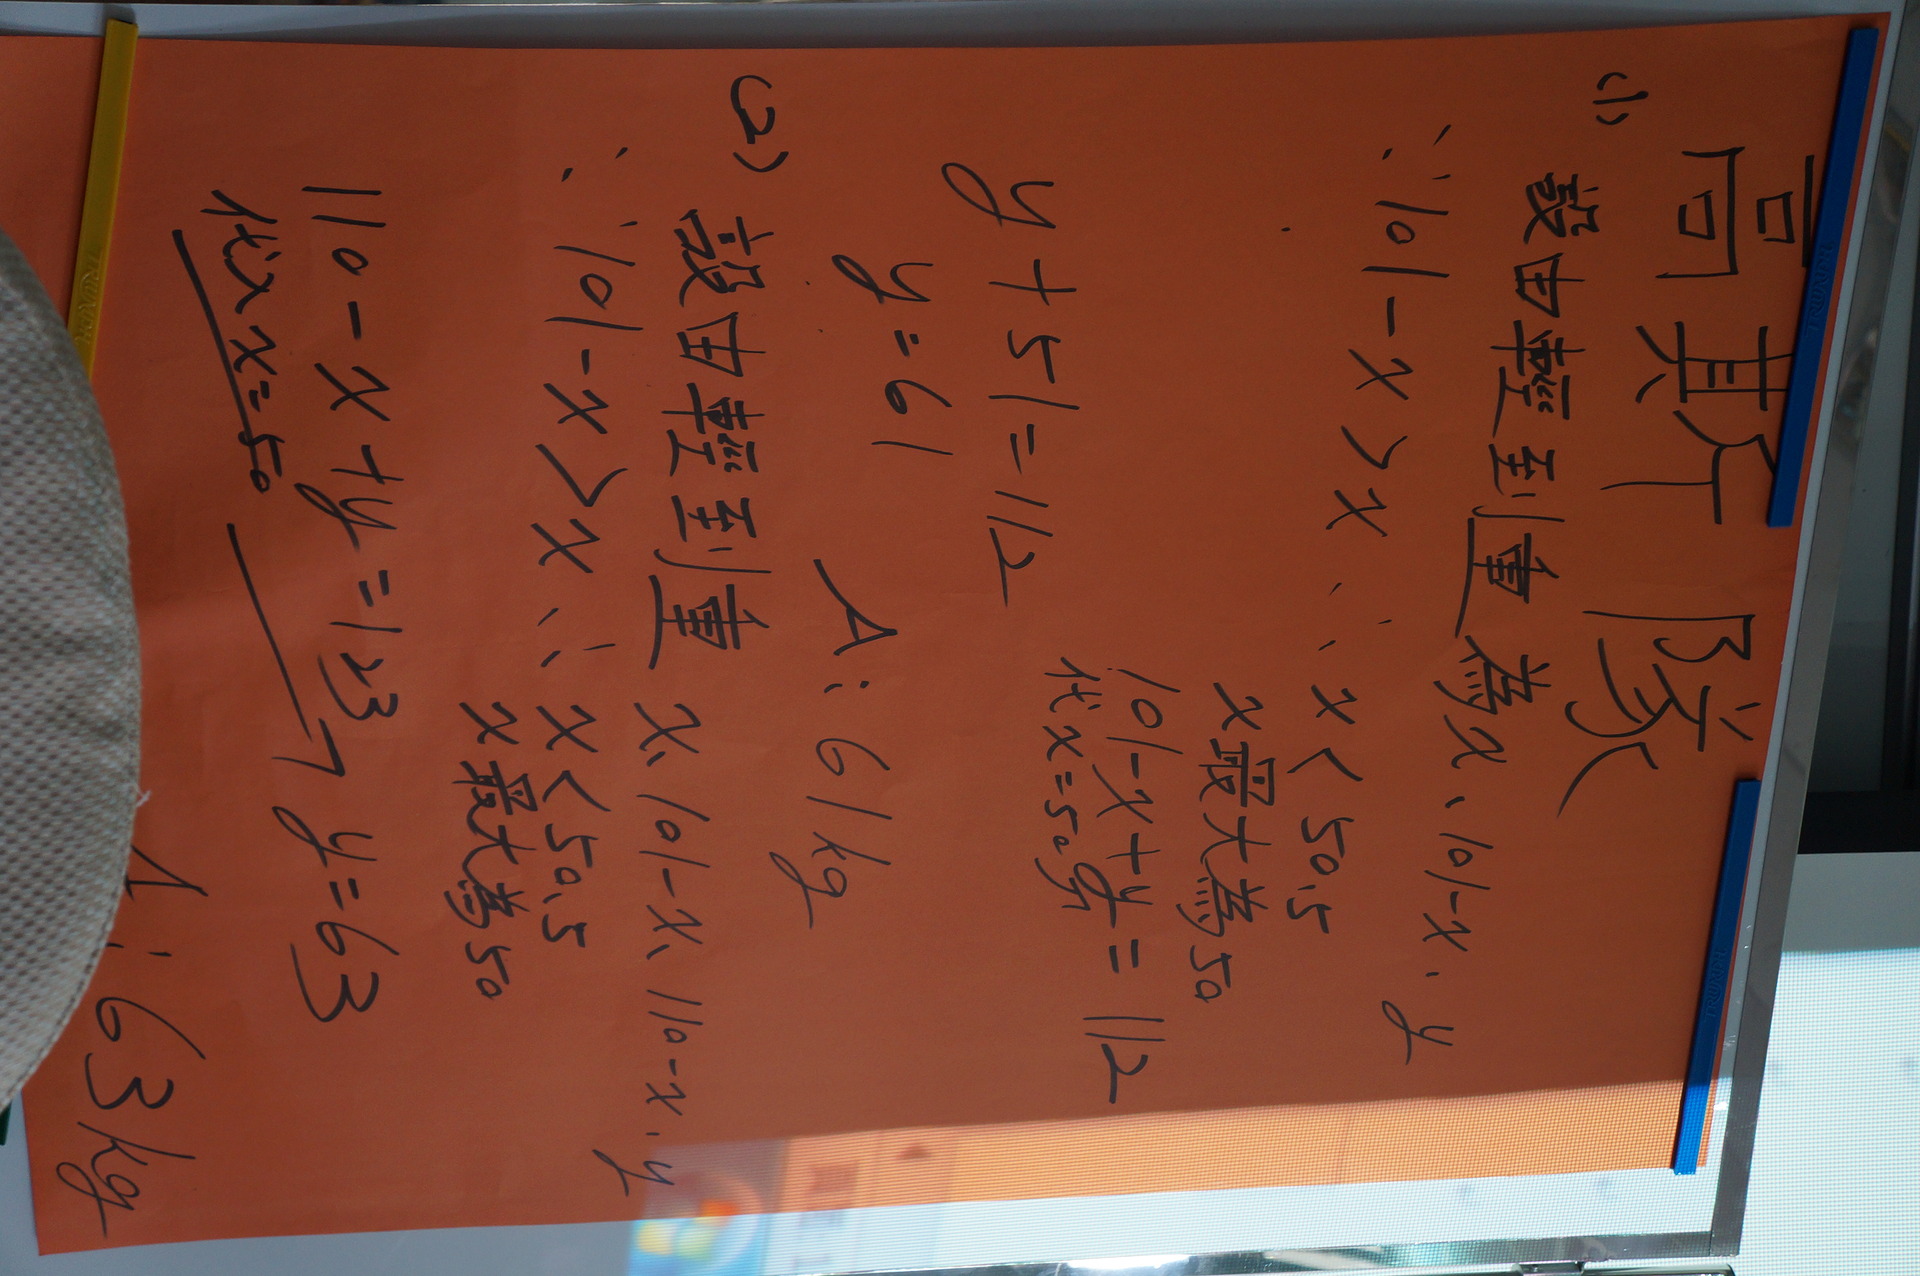 高斯隊
(1)
設由輕到重為x、101-x、y
∵101-x>x ∴ x<50.5
x最大為50
101-x+y=112
代x=50
y+51=112
y=61
A:61kg
(2) 設由輕到重 x、101-x、110-x、y
∵101-x>x ∴ x<50.5
x最大為50
110-x+y=123 → y=63
代入x=50
A:63kg
TRIUMPH